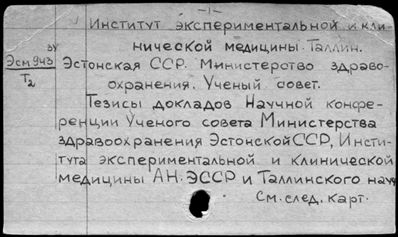 -1-
Институт экспериментальной и кли-
зу
нической медицины. Таллин.
Эсм 943
Т2
Эстонская ССР. Министерство здраво-
охранения. Ученый совет.
Тезисы докладов Научной конфе-
ренции Ученого совета Министерства
здравоохранения Эстонской ССР, Инсти-
тута экспериментальной и клинической
медицины АН ЭССР и Таллинского науч
См. след. карт.